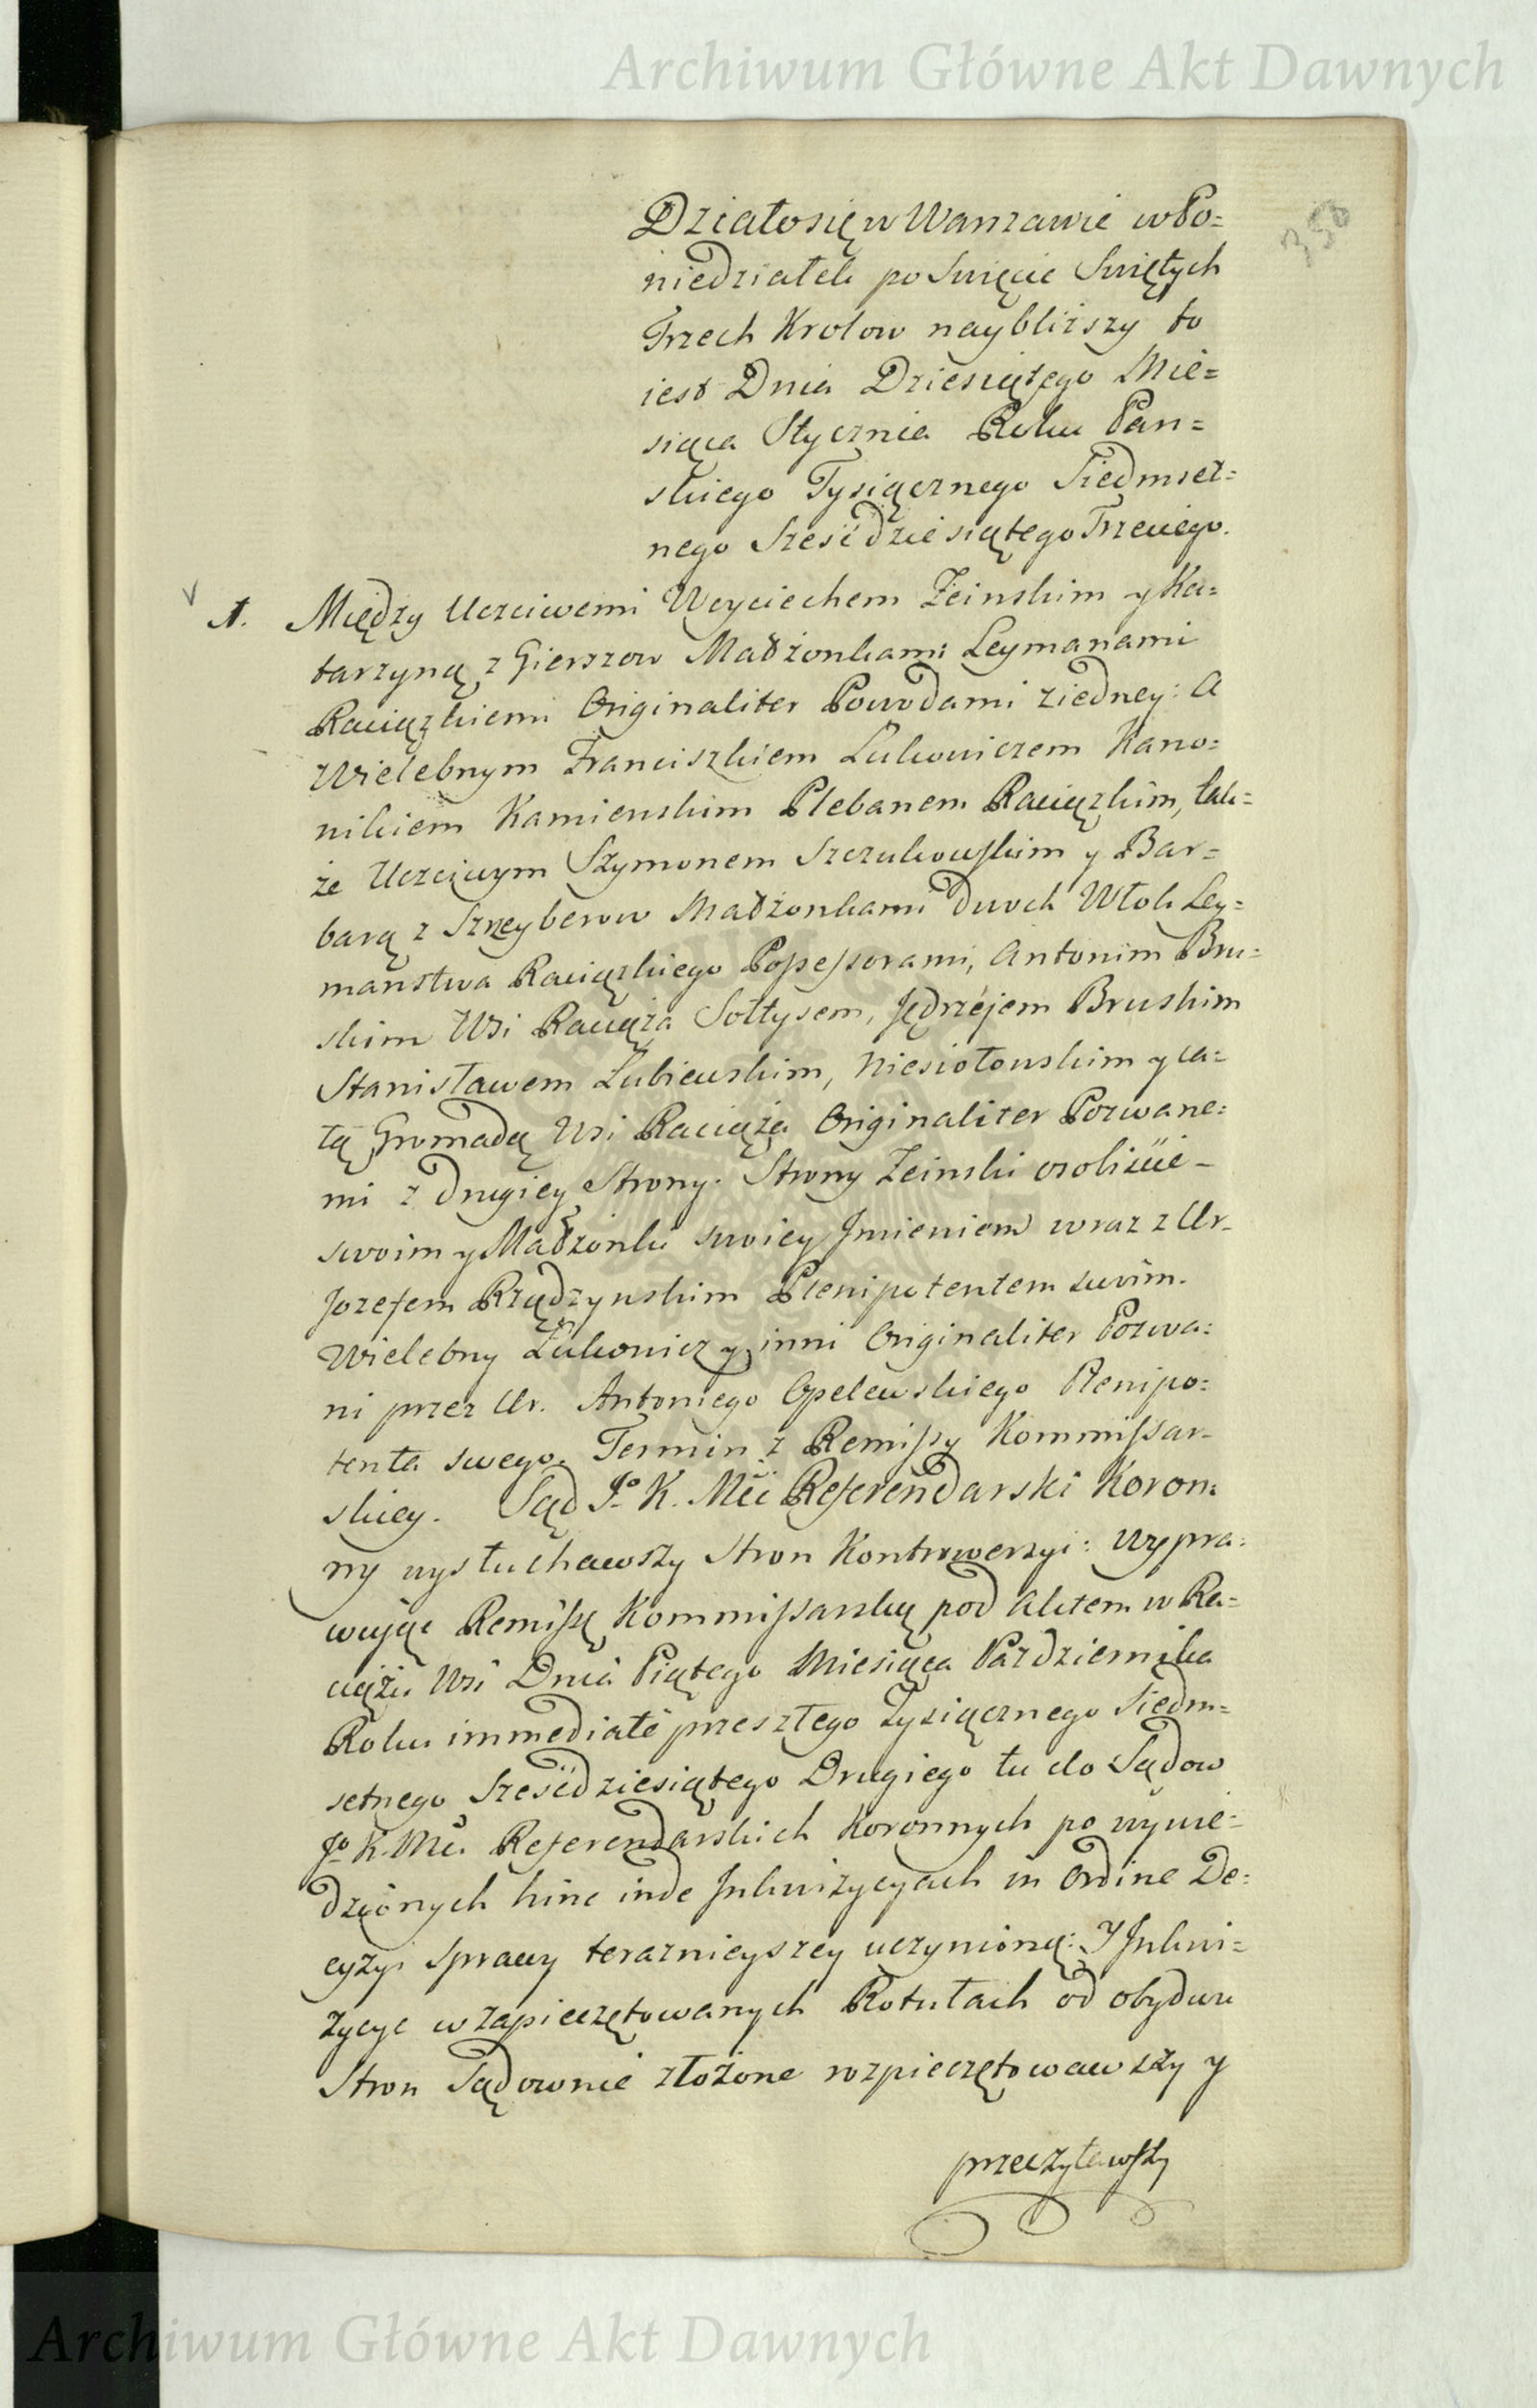 Archiwum Główne Akt Dawnych
350
Działo się w Warszawie w Po=
niedziałek po Swięcie Swiętych
Trzech Krolow naybliższy to
iest Dnia Dziesiątego Mie=
siąca Stycznia Roku Pan=
skiego Tysiącznego Siedmset=
nego Sześćdziesiątego Trzeciego.
1. Między Uczciwemi Woyciechem Zeinskim y Ka=
tarzyną z Gierszow Małżonkami Leymanami
Raciązkiemi Originaliter Powodami z iedney: a
Wielebnym Franciszkiem Lukowiczem Kano=
nikiem Kamienskim Plebanem Raciązkim, tak=
że Uczciwym Szymonem Szczukowskim y Bar=
barą z Szreyberow Małżonkami dwoch Włok Ley=
manstwa Raciązkiego Possessorami, Antonim Bru=
skim Wsi Raciąża Sołtysem, Jędrzejem Bruskim
Stanisławem Lubiewskim, Niesiołowskim y ca=
łą Gromadą Wsi Raciąża Originaliter Pozwane=
mi z drugiey Strony. Strony Zeinski osobiście
swoim y Małżonki swoiey Jmieniem wraz z Ur.
Jozefem Rządzynskim Plenipotentem swoim.
Wielebny Lukowicz y inni Originaliter Pozwa=
ni przez Ur. Antoniego Opelewskiego Plenipo=
tenta swego. Termin z Remissy Kommissar=
skiey. Sąd Jo K. Mci Referendarski Koron=
ny wysłuchawszy Stron Kontrowersyi: wypra=
wuiąc Remissę Kommissarską pod Aktem w Ra=
ciążu Wsi Dnia Piątego Miesiąca Pazdziernika
Roku immediate przeszłego Tysiącznego Siedm=
setnego Sześćdziesiątego Drugiego tu do Sądow
Jo K. Mci Referendarskich Koronnych po wywie=
dzionych hinc inde Jnkwizycyach in Ordine De=
cyzyi sprawy terazniejszey uczynioną: Y Jnkwi=
zycye w zapieczętowanych Rotułach od obydwu
Stron Sądownie złożone rozpieczętowawszy y
przeczytawszy
Archiwum Główne Akt Dawnych